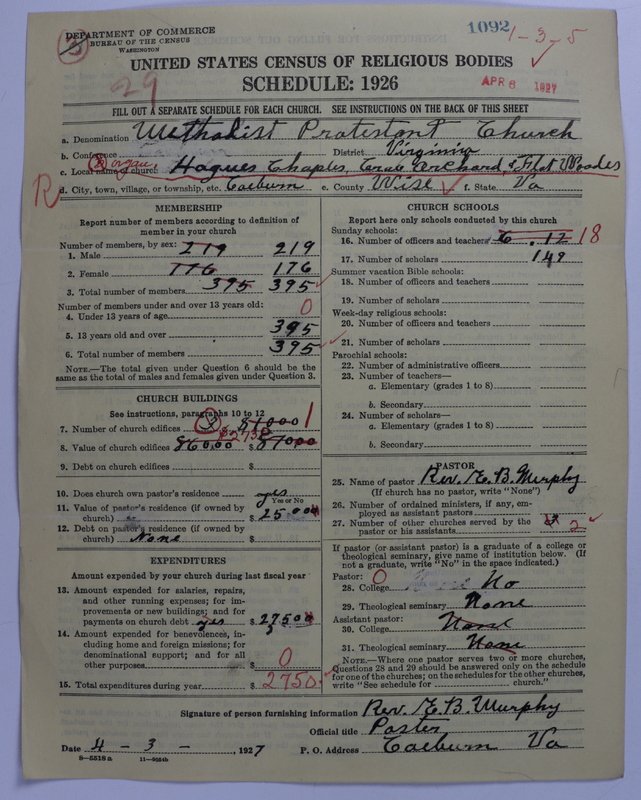 DEPARTMENT OF COMMERCE
BUREAU OF THE CENSUS
WASHINGTON
1092
1-3-5
UNITED STATES CENSUS OF RELIGIOUS BODIES
SCHEDULE: 1926
APR 6 1927
29
FILL OUT A SEPARATE SCHEDULE FOR EACH CHURCH. SEE INSTRUCTIONS ON THE BACK OF THIS SHEET
a. Denomination Methodist Protestant Church
b. Conference District Virginia
c. Local name of church Hagues Chaple, Crab Orchard, & Flat Woodes
R
d. City, town, village, or township, etc. Coeburn e. County Wise f. State Va
MEMBERSHIP
Report number of members according to definition of member in your church
Number of members, by sex:
1. Male 219 219
2. Female 176 176
3. Total number of members 395 395
Number of members under and over 13 years old:
4. Under 13 years of age 0
5. 13 years old and over 395
6. Total number of members 395
NOTE.—The total given under Question 6 should be the same as the total of males and females given under Question 3.
CHURCH BUILDINGS
See instructions, paragraphs 10 to 12
7. Number of church edifices 1
8. Value of church edifices $
9. Debt on church edifices $
10. Does church own pastor's residence yes
Yes or No
11. Value of pastor's residence (if owned by church) $ 2500
12. Debt on pastor's residence (if owned by church) None $
EXPENDITURES
Amount expended by your church during last fiscal year
13. Amount expended for salaries, repairs, and other running expenses; for improvements or new buildings; and for payments on church debt yes $ 2750
14. Amount expended for benevolences, including home and foreign missions; for denominational support; and for all other purposes $ 0
15. Total expenditures during year $ 2750
CHURCH SCHOOLS
Report here only schools conducted by this church
Sunday schools:
16. Number of officers and teachers 6 . 12 18
17. Number of scholars 149
Summer vacation Bible schools:
18. Number of officers and teachers
19. Number of scholars
Week-day religious schools:
20. Number of officers and teachers
21. Number of scholars
Parochial schools:
22. Number of administrative officers
23. Number of teachers—
a. Elementary (grades 1 to 8)
b. Secondary
24. Number of scholars—
a. Elementary (grades 1 to 8)
b. Secondary
PASTOR
25. Name of pastor Rev. E. B. Murphy
(If church has no pastor, write "None")
26. Number of ordained ministers, if any, employed as assistant pastors
27. Number of other churches served by the pastor or his assistants 2
If pastor (or assistant pastor) is a graduate of a college or theological seminary, give name of institution below. (If not a graduate, write "No" in the space indicated.)
Pastor: 0
28. College No
29. Theological seminary None
Assistant pastor:
30. College None
31. Theological seminary None
NOTE.—Where one pastor serves two or more churches, Questions 28 and 29 should be answered only on the schedule for one of the churches; on the schedules for the other churches, write "See schedule for church."
Signature of person furnishing information Rev. E. B. Murphy
Official title Paster
Date 4 - 3 - , 1927 P. O. Address Coeburn Va
8-5518a